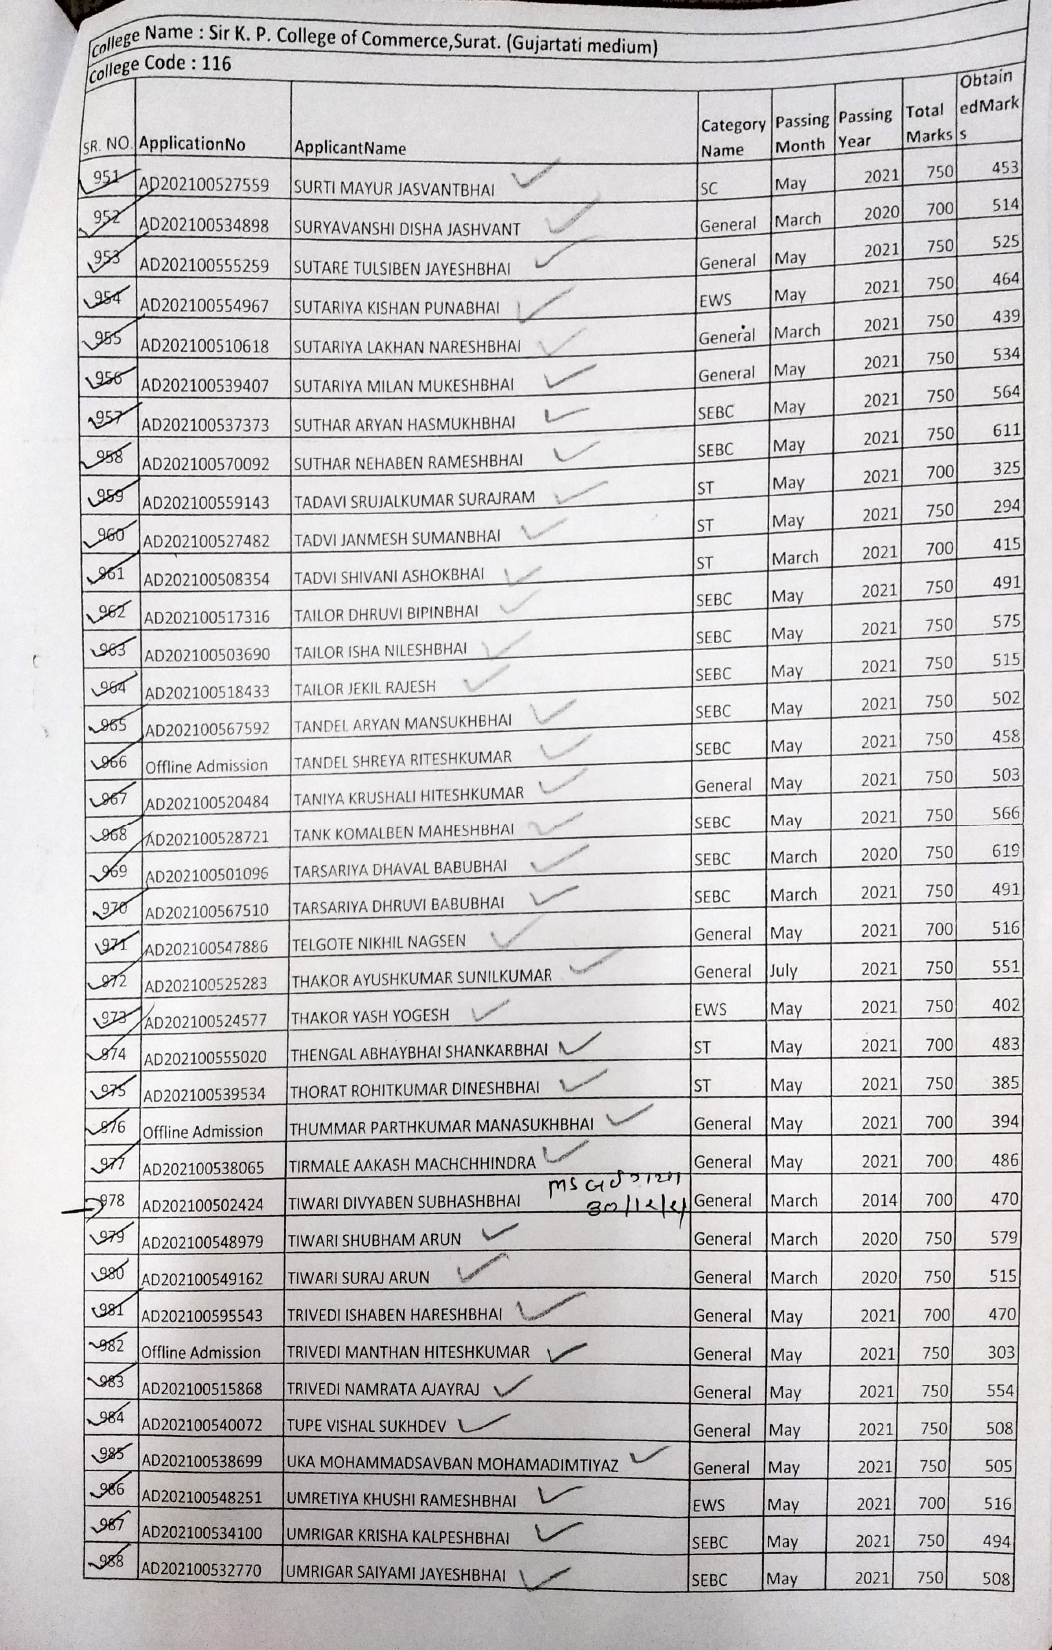 College Name : Sir K. P. College of Commerce,Surat. (Gujartati medium)
College Code : 116
SR. NO. ApplicationNo ApplicantName Category Name Passing Month Passing Year Total Marks ObtainedMarks
951 AD202100527559 SURTI MAYUR JASVANTBHAI SC May 2021 750 453
952 AD202100534898 SURYAVANSHI DISHA JASHVANT General March 2020 700 514
953 AD202100555259 SUTARE TULSIBEN JAYESHBHAI General May 2021 750 525
954 AD202100554967 SUTARIYA KISHAN PUNABHAI EWS May 2021 750 464
955 AD202100510618 SUTARIYA LAKHAN NARESHBHAI General March 2021 750 439
956 AD202100539407 SUTARIYA MILAN MUKESHBHAI General May 2021 750 534
957 AD202100537373 SUTHAR ARYAN HASMUKHBHAI SEBC May 2021 750 564
958 AD202100570092 SUTHAR NEHABEN RAMESHBHAI SEBC May 2021 750 611
959 AD202100559143 TADAVI SRUJALKUMAR SURAJRAM ST May 2021 700 325
960 AD202100527482 TADVI JANMESH SUMANBHAI ST May 2021 750 294
961 AD202100508354 TADVI SHIVANI ASHOKBHAI ST March 2021 700 415
962 AD202100517316 TAILOR DHRUVI BIPINBHAI SEBC May 2021 750 491
963 AD202100503690 TAILOR ISHA NILESHBHAI SEBC May 2021 750 575
964 AD202100518433 TAILOR JEKIL RAJESH SEBC May 2021 750 515
965 AD202100567592 TANDEL ARYAN MANSUKHBHAI SEBC May 2021 750 502
966 Offline Admission TANDEL SHREYA RITESHKUMAR SEBC May 2021 750 458
967 AD202100520484 TANIYA KRUSHALI HITESHKUMAR General May 2021 750 503
968 AD202100528721 TANK KOMALBEN MAHESHBHAI SEBC May 2021 750 566
969 AD202100501096 TARSARIYA DHAVAL BABUBHAI SEBC March 2020 750 619
970 AD202100567510 TARSARIYA DHRUVI BABUBHAI SEBC March 2021 750 491
971 AD202100547886 TELGOTE NIKHIL NAGSEN General May 2021 700 516
972 AD202100525283 THAKOR AYUSHKUMAR SUNILKUMAR General July 2021 750 551
973 AD202100524577 THAKOR YASH YOGESH EWS May 2021 750 402
974 AD202100555020 THENGAL ABHAYBHAI SHANKARBHAI ST May 2021 700 483
975 AD202100539534 THORAT ROHITKUMAR DINESHBHAI ST May 2021 750 385
976 Offline Admission THUMMAR PARTHKUMAR MANASUKHBHAI General May 2021 700 394
977 AD202100538065 TIRMALE AAKASH MACHCHHINDRA General May 2021 700 486
978 AD202100502424 TIWARI DIVYABEN SUBHASHBHAI General March 2014 700 470
979 AD202100548979 TIWARI SHUBHAM ARUN General March 2020 750 579
980 AD202100549162 TIWARI SURAJ ARUN General March 2020 750 515
981 AD202100595543 TRIVEDI ISHABEN HARESHBHAI General May 2021 700 470
982 Offline Admission TRIVEDI MANTHAN HITESHKUMAR General May 2021 750 303
983 AD202100515868 TRIVEDI NAMRATA AJAYRAJ General May 2021 750 554
984 AD202100540072 TUPE VISHAL SUKHDEV General May 2021 750 508
985 AD202100538699 UKA MOHAMMADSAVBAN MOHAMADIMTIYAZ General May 2021 750 505
986 AD202100548251 UMRETIYA KHUSHI RAMESHBHAI EWS May 2021 700 516
987 AD202100534100 UMRIGAR KRISHA KALPESHBHAI SEBC May 2021 750 494
988 AD202100532770 UMRIGAR SAIYAMI JAYESHBHAI SEBC May 2021 750 508